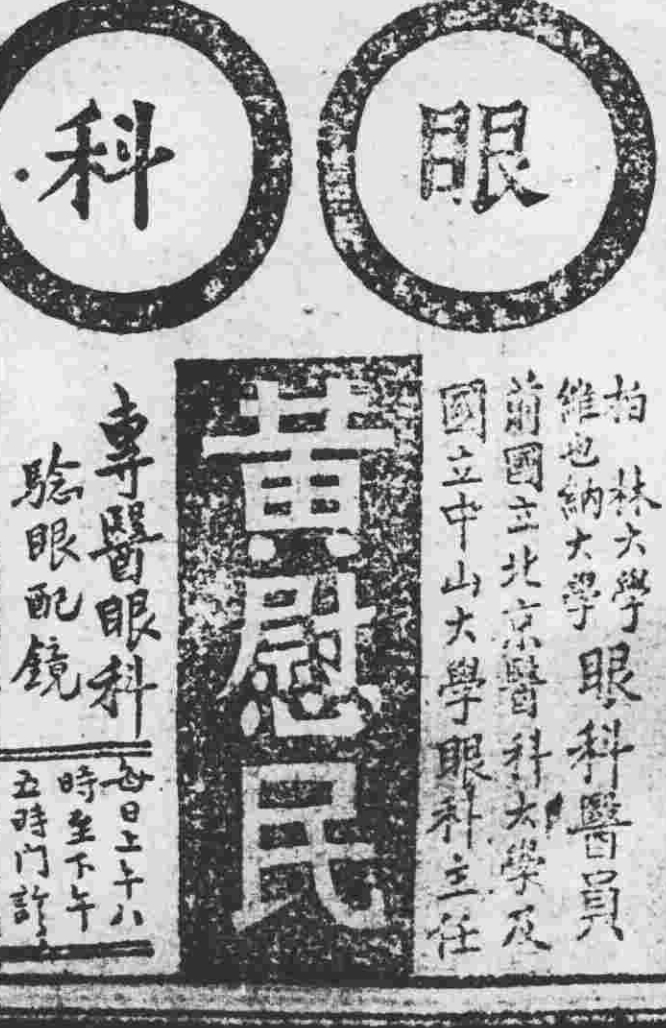 眼科
柏林大學
維也納大學
眼科醫員
前國立北京醫科大學及
國立中山大學眼科主任
黃慰民
專醫眼科
驗眼配鏡
每日上午八
時至下午
五時門診